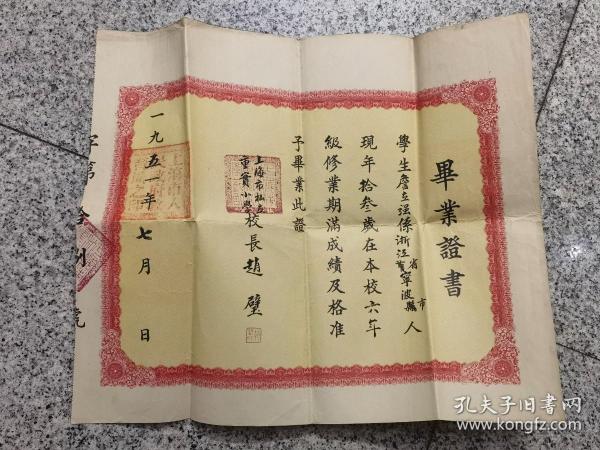 畢業證書
學生詹立强係浙江省寧波縣市人
現年拾叁歲在本校六年
級修業期滿成績及格准
予畢業此證
上海市私立
重實小學校長趙璧
一九五一年七月 日
字第 號
孔夫子旧书网
www.kongfz.com